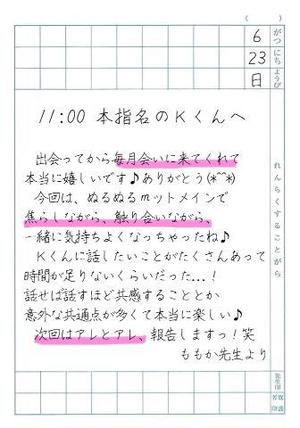 (　　)
6 がつ
23 にち
日 ようび
れんらくすることがら
11:00 本指名のKくんへ
出会ってから毎月会いに来てくれて
本当に嬉しいです♪ありがとう(*^^*)
今回は、ぬるぬるmットメインで
焦らしながら、触り合いながら、
一緒に気持ちよくなっちゃったね♪
Kくんに話したいことがたくさんあって
時間が足りないくらいだった...!
話せば話すほど共感することとか
意外な共通点が多くて本当に楽しい♪
次回はアレとアレ、報告しますっ!笑
ももか先生より